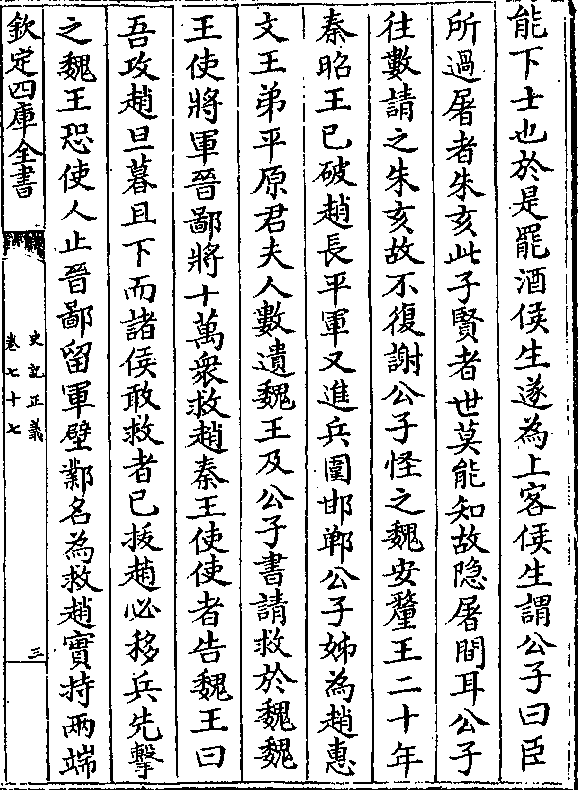 能下士也於是罷酒侯生遂為上客侯生謂公子曰臣
所過屠者朱亥此子賢者世莫能知故隐屠間耳公子
往數請之朱亥故不復謝公子怪之魏安釐王二十年
秦昭王已破趙長平軍又進兵圍邯鄲公子姊為趙惠
文王弟平原君夫人數遺魏王及公子書請救於魏魏
王使將軍晉鄙將十萬衆救趙秦王使使者告魏王曰
吾攻趙旦暮且下而諸侯敢救者已拔趙必移兵先擊
之魏王恐使人止晉鄙留軍壁鄴名為救趙實持兩端
欽定四庫全書
史記正義
卷七十七
三